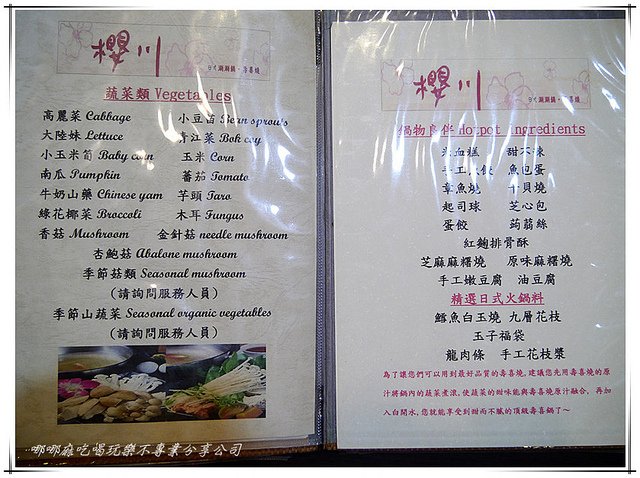 櫻川
日式涮涮鍋‧壽喜燒
蔬菜類 Vegetables
高麗菜 Cabbage 小豆苗 Bean sprouts
大陸妹 Lettuce 青江菜 Bok coy
小玉米筍 Baby corn 玉米 Corn
南瓜 Pumpkin 蕃茄 Tomato
牛奶山藥 Chinese yam 芋頭 Taro
綠花椰菜 Broccoli 木耳 Fungus
香菇 Mushroom 金針菇 needle mushroom
杏鮑菇 Abalone mushroom
季節菇類 Seasonal mushroom
(請詢問服務人員)
季節山蔬菜 Seasonal organic vegetables
(請詢問服務人員)
櫻川
日式涮涮鍋‧壽喜燒
鍋物良伴 Hotpot ingredients
米血糕 甜不辣
手工水餃 魚包蛋
章魚燒 干貝燒
起司球 芝心包
蛋餃 蒟蒻絲
紅麴排骨酥
芝麻麻糬燒 原味麻糬燒
手工嫩豆腐 油豆腐
精選日式火鍋料
鱈魚白玉燒 九層花枝
玉子福袋
龍肉條 手工花枝漿
為了讓您們可以用到最好品質的壽喜燒,建議您先用壽喜燒的原
汁將鍋內的蔬菜煮滾,使蔬菜的甜味能與壽喜燒原汁融合,再加
入白開水,您就能享受到甜而不膩的頂級壽喜鍋了～
嘟嘟麻吃喝玩樂不專業分享公司